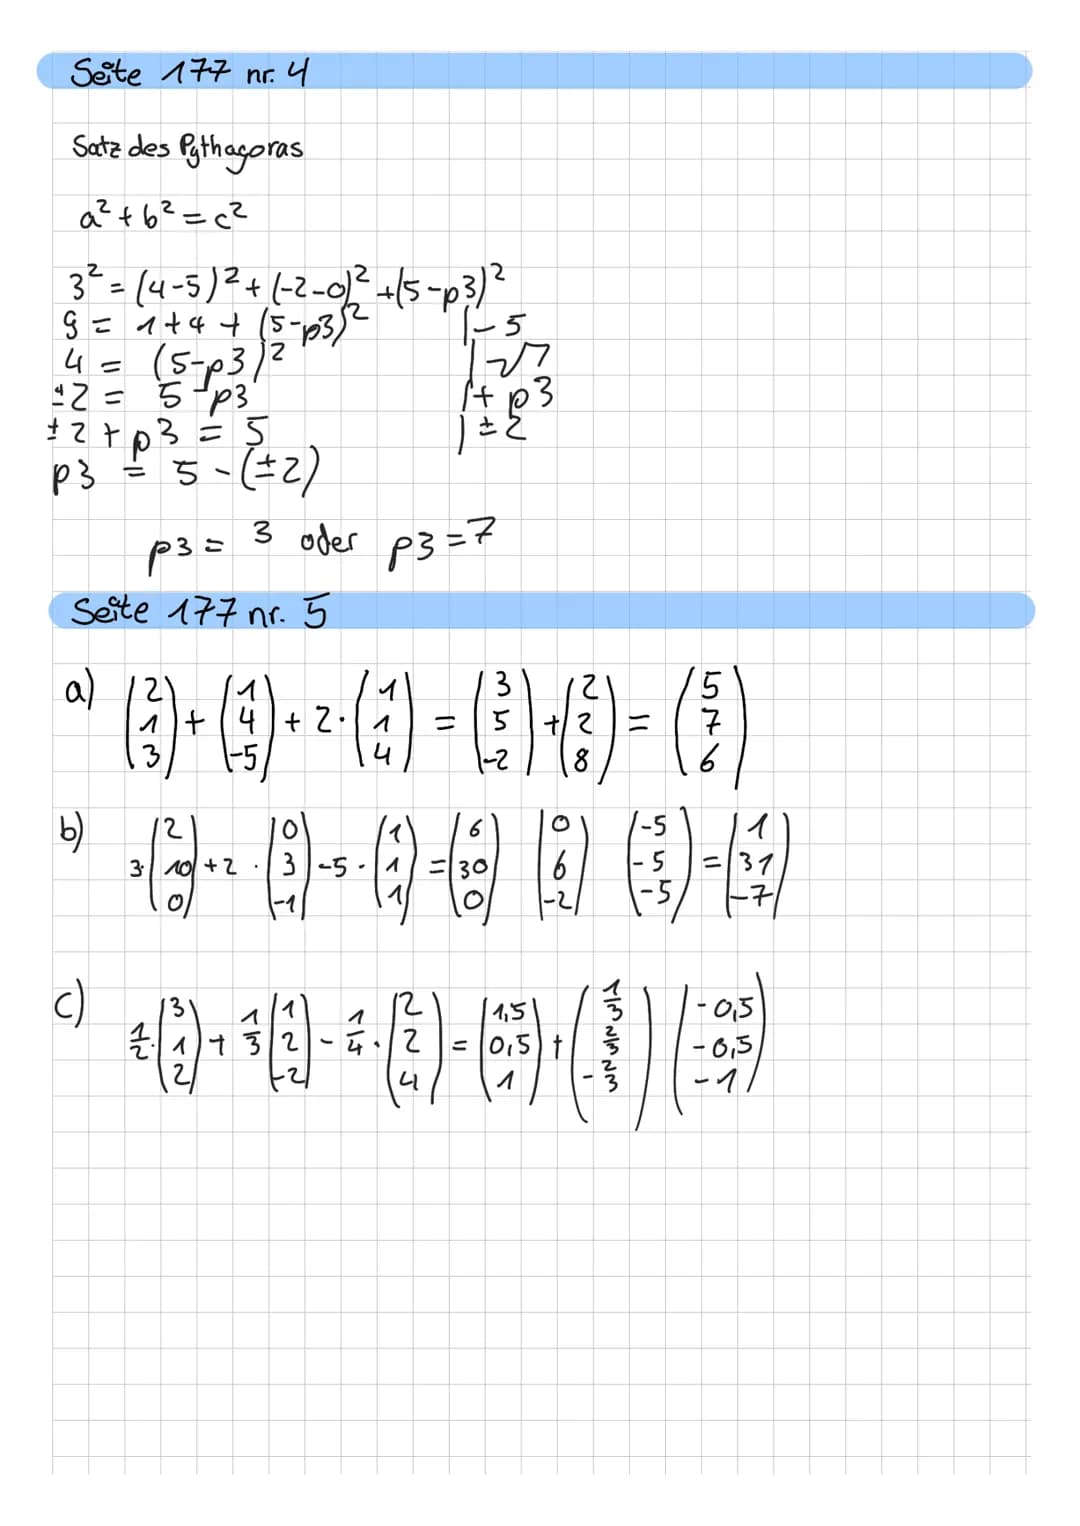 Seite 177 nr. 4
Satz des Pythagoras
a² + b² = c²
3² = (4-5)² + (-2-0)² + (5-p3)²
9 = 1+4 + (5-p3)² |-5
4 = (5-p3)² |√
±2 = 5-p3 |+ p3
±2 + p3 = 5 |±2
p3 = 5 - (±2)
p3 = 3 oder p3 = 7
Seite 177 nr. 5
a) (2 1 3) + (1 4 -5) + 2·(1 1 4) = (3 5 -2) + (2 2 8) = (5 7 6)
b) 3·(2 10 0) +2 · (0 3 -1) -5 · (1 1 1) = (6 30 0) (0 6 -2) (-5 -5 -5) = (1 31 -7)
c) 1/2·(3 1 2) + 1/3 (1 2 -2) - 1/4 · (2 2 4) = (1,5 0,5 1) + (1/3 2/3 -2/3) (-0,5 -0,5 -1)